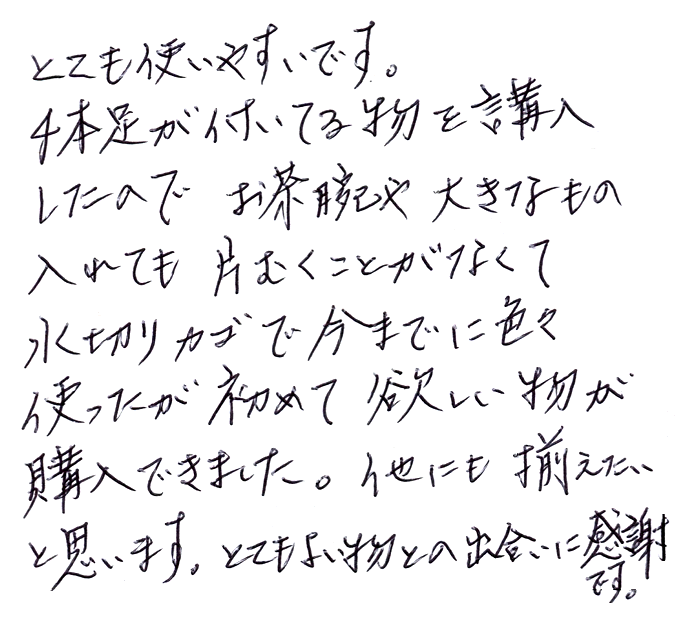 とても使いやすいです。
4本足が付いてる物を講入
したので お茶腕や大きなもの
入れても片むくことがなくて
水切りカゴで今までに色々
使ったが初めて欲しい物が
購入できました。他にも揃えたい
と思います。とてもよい物との出合いに感謝
です。